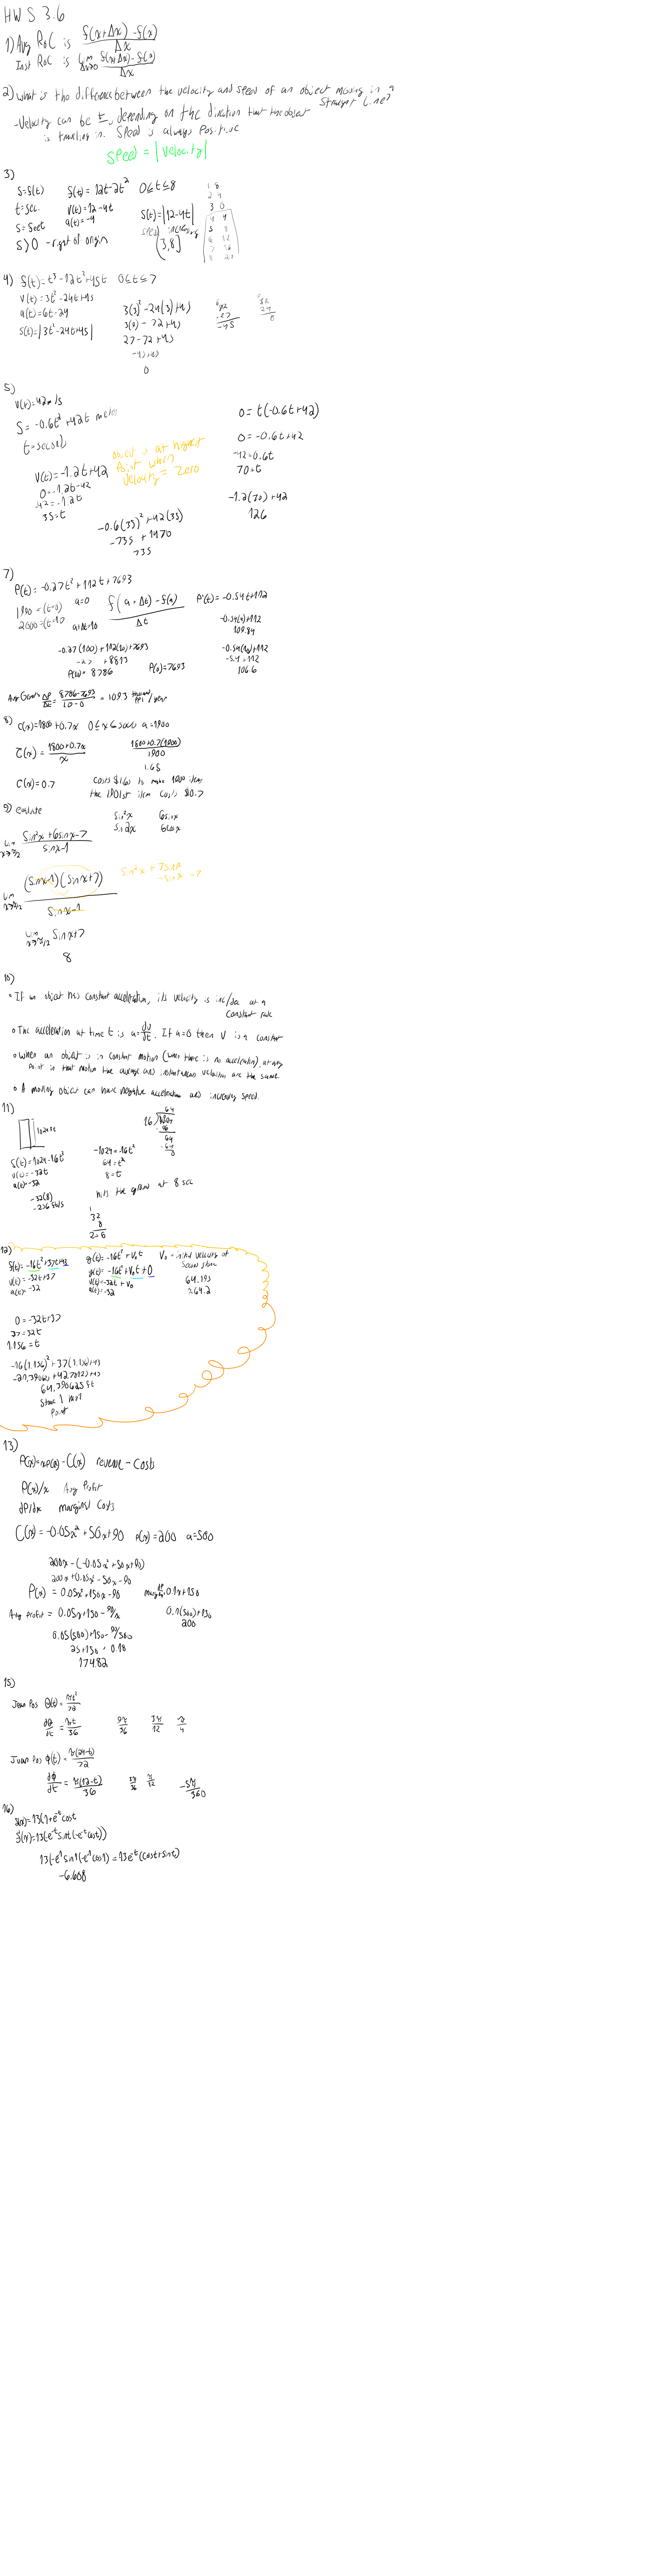 HW S 3.6
1) Avg RoC is f(x+Δx)-f(x) / Δx
Inst RoC is lim Δx→0 f(x+Δx)-f(x) / Δx
2) What is the difference between the velocity and speed of an object moving in a Straight Line?
-Velocity can be ±, depending on the direction that the object
is traveling in. Speed is always positive
Speed = |Velocity|
3)
S=f(t) f(t)=12t-2t² 0≤t≤8
t=sec. v(t)=12-4t S(t)=|12-4t|
S=feet a(t)=-4
S>0 -right of origin
speed increasing
(3,8]
1 8
2 4
3 0
4 4
5 8
6 12
7 16
8 20
4) f(t)=t³-12t²+45t 0≤t≤7
v(t)=3t²-24t+45
a(t)=6t-24
S(t)=|3t²-24t+45|
3(3)²-24(3)+45
3(9)-72+45
27-72+45
-45+45
0
5)
v(t)=42m/s
S=-0.6t²+42t meters
t=seconds
v(t)=-1.2t+42
0=-1.2t+42
-42=-1.2t
35=t
object is at highest
Point when
velocity = Zero
-0.6(35)²+42(35)
-735 + 1470
735
0=t(-0.6t+42)
0=-0.6t+42
-42=0.6t
70=t
-1.2(70)+42
126
7)
P(t)=-0.27t²+112t+7693
1990=(t=0) a=0
2000=(t=10) a+Δt=10
f(a+Δt)-f(a) / Δt
P'(t)=-0.54t+112
-0.54(4)+112
109.84
-0.54(10)+112
-5.4+112
106.6
-0.27(100)+112(10)+7693
-27 +8813
P(10)=8786 P(0)=7693
Avg Growth ΔP/Δt = 8786-7693 / 10-0 = 109.3 thousand ppl / year
8) C(x)=1800+0.7x 0≤x≤5000 a=1900
C̄(x)= 1800+0.7x / x
1800+0.7(1900) / 1900
1.65
C'(x)=0.7
9) evaluate
sin²x 6sinx
sin2x 6cosx
lim x→π/2 sin²x+6sinx-7 / sinx-1
lim x→π/2 (sinx-1)(sinx+7) / sinx-1
sin²x + 7sinx
-sinx -7
lim x→π/2 sinx+7
8
10)
• If an object has constant acceleration, its velocity is inc/dec at a
constant rate
• The acceleration at time t is a=dv/dt. If a=0 then v is a constant
• When an object is in constant motion (when there is no acceleration), at any
point in that motion the average and instantaneous velocities are the same.
• A moving object can have negative acceleration and increasing speed.
11)
1024 ft
f(t)=1024-16t²
v(t)=-32t
a(t)=-32
-32(8)
-256 ft/s
-1024=-16t²
64=t²
8=t
hits the ground at 8 sec
32
8
256
12)
f(t)=-16t²+37t+43
v(t)=-32t+37
a(t)=-32
g(t)=-16t²+V₀t
g(t)=-16t²+V₀t+0
v(t)=-32t+V₀
a(t)=-32
V₀=initial velocity of
second stone
64.193
64.2
0=-32t+37
37=32t
1.156=t
-16(1.156)²+37(1.156)+43
64.390625 ft
Stone 1 max
point
13)
P(x)=xp(x)-C(x) revenue-Costs
P(x)/x Avg Profit
dP/dx marginal Costs
C(x)=-0.05x²+50x+90 p(x)=200 a=500
200x-(-0.05x²+50x+90)
200x+0.05x²-50x-90
P(x)=0.05x²+150x-90
0.1x+150
Avg profit = 0.05x+150-90/x
0.1(500)+150
200
0.05(500)+150-90/500
25+150-0.18
174.82
15)
Jean Pos θ(t)= πt²/72
dθ/dt = πt/36
Juan Pos φ(t)= π(24t-t)/72
dφ/dt = π(12-t)/36
16)
13e⁻ᵗ(cost+sint)
-6.608